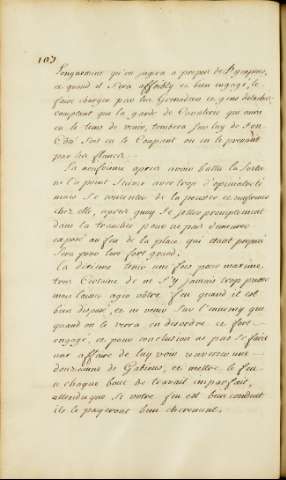 107
l'engarement qu'on jugera a propos de
et quand il sera affoibly et bien engagé, le
faire charger par les Grenadiers et gens détachés
comptant que la garde de Cavalerie qui aura
eu le tems de venir, tombera sur luy de son
Côté soit en le Coupant ou en le prenant
par les flancs.
La neufvieme apres avoir battu la sortie
ne la point suivre avec trop d'opiniatreté
mais se contenter de la pousser et renfermer
chez elle, apres quoy se jetter promptement
dans la tranchée pour ne pas demeurer
exposé au feu de la place, qui étant preparé
sera pour lors fort grand.
La dixieme tenir une fois pour maxime
tres Certaine de ne s'y jamais trop presser
mais laisser agir votre feu quand il est
bien disposé, et ne venir sur l'ennemy que
quand on le verra en desordre et fort
engagé, et pour conclusion ne pas se faire
une affaire de luy voir renverser une
douzaine de Gabions, et mettre le feu
a chaque bout de travail imparfait,
attendu que si votre feu est bien conduit
ils le payeront bien cherement.